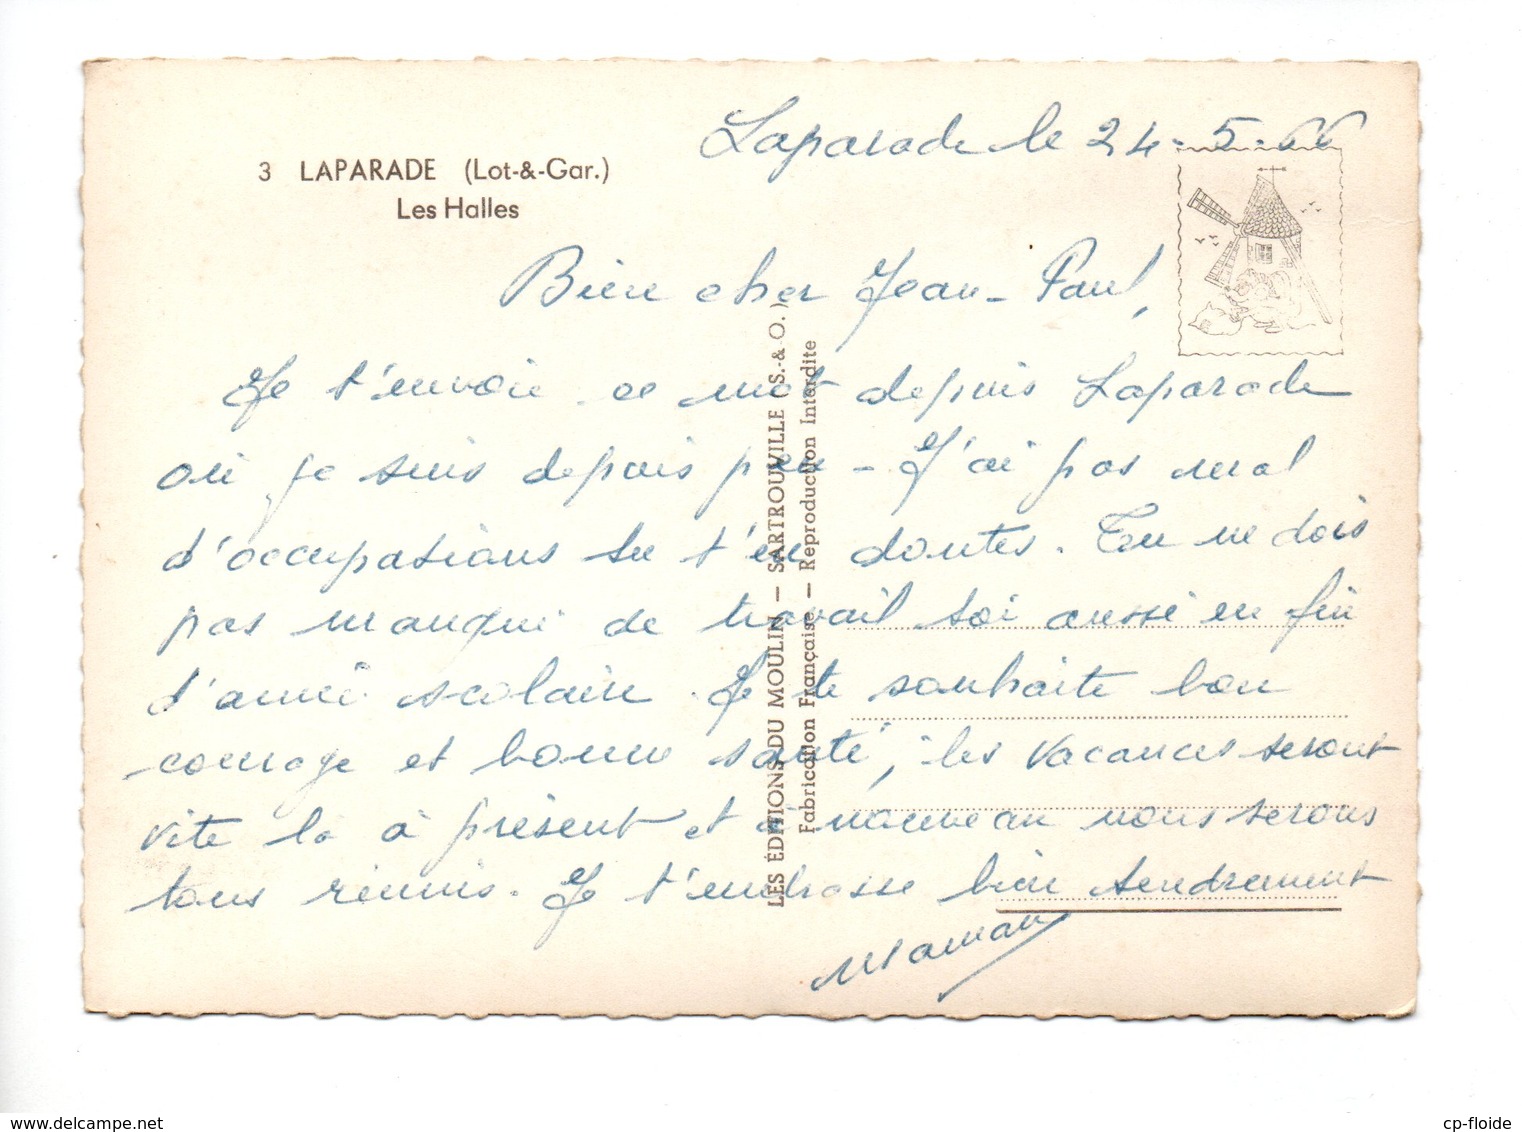 Laparade le 24-5-66
3 LAPARADE (Lot-&-Gar.)
Les Halles
Bien cher Jean-Paul,
Je t'envoie ce mot depuis Laparade
où je suis depuis peu - J'ai pas mal
d'occupations tu t'en doutes. Tu ne dois
pas manquer de travail toi aussi en fin
d'année scolaire. Je te souhaite bon
courage et bonne santé, les vacances seront
vite là à présent et à nouveau nous serons
tous réunis. Je t'embrasse bien tendrement
Maman
LES ÉDITIONS DU MOULIN - SARTROUVILLE (S.-&-O.)
Fabrication Française - Reproduction Interdite
delcampe.net
cp-floide